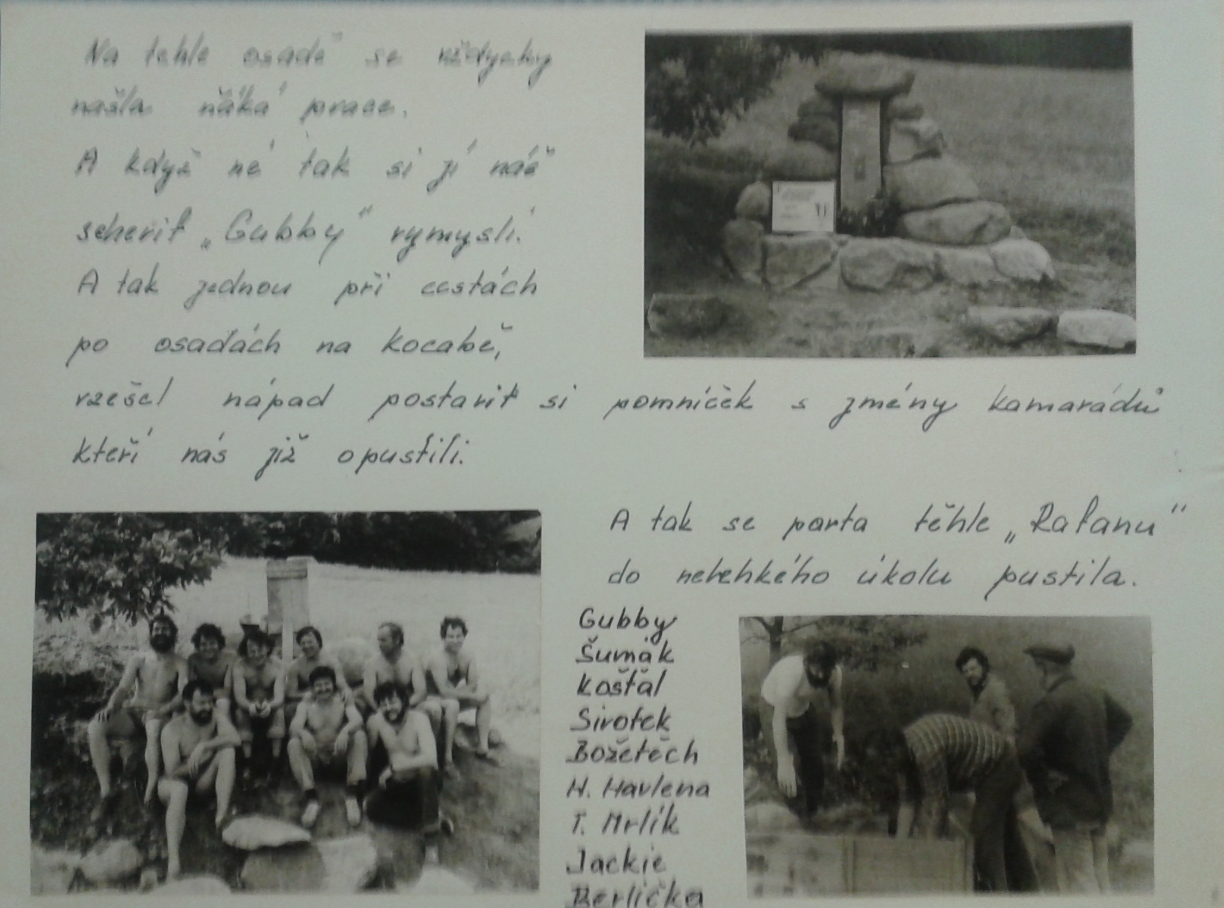 Na tehle osadě se vždycky
našla ňáká prace.
A když né tak si jí náš
scherif „Gubby" vymyslí.
A tak jednou při cestách
po osadách na kocabě,
vzešel nápad postavit si pomníček s jmény kamarádů
kteří nás již opustili.
A tak se parta těhle „Rafanu"
do nelehkého úkolu pustila.
Gubby
Šumák
Košťál
Sirotek
Božetěch
H. Havlena
T. Mrlík
Jackie
Berlička